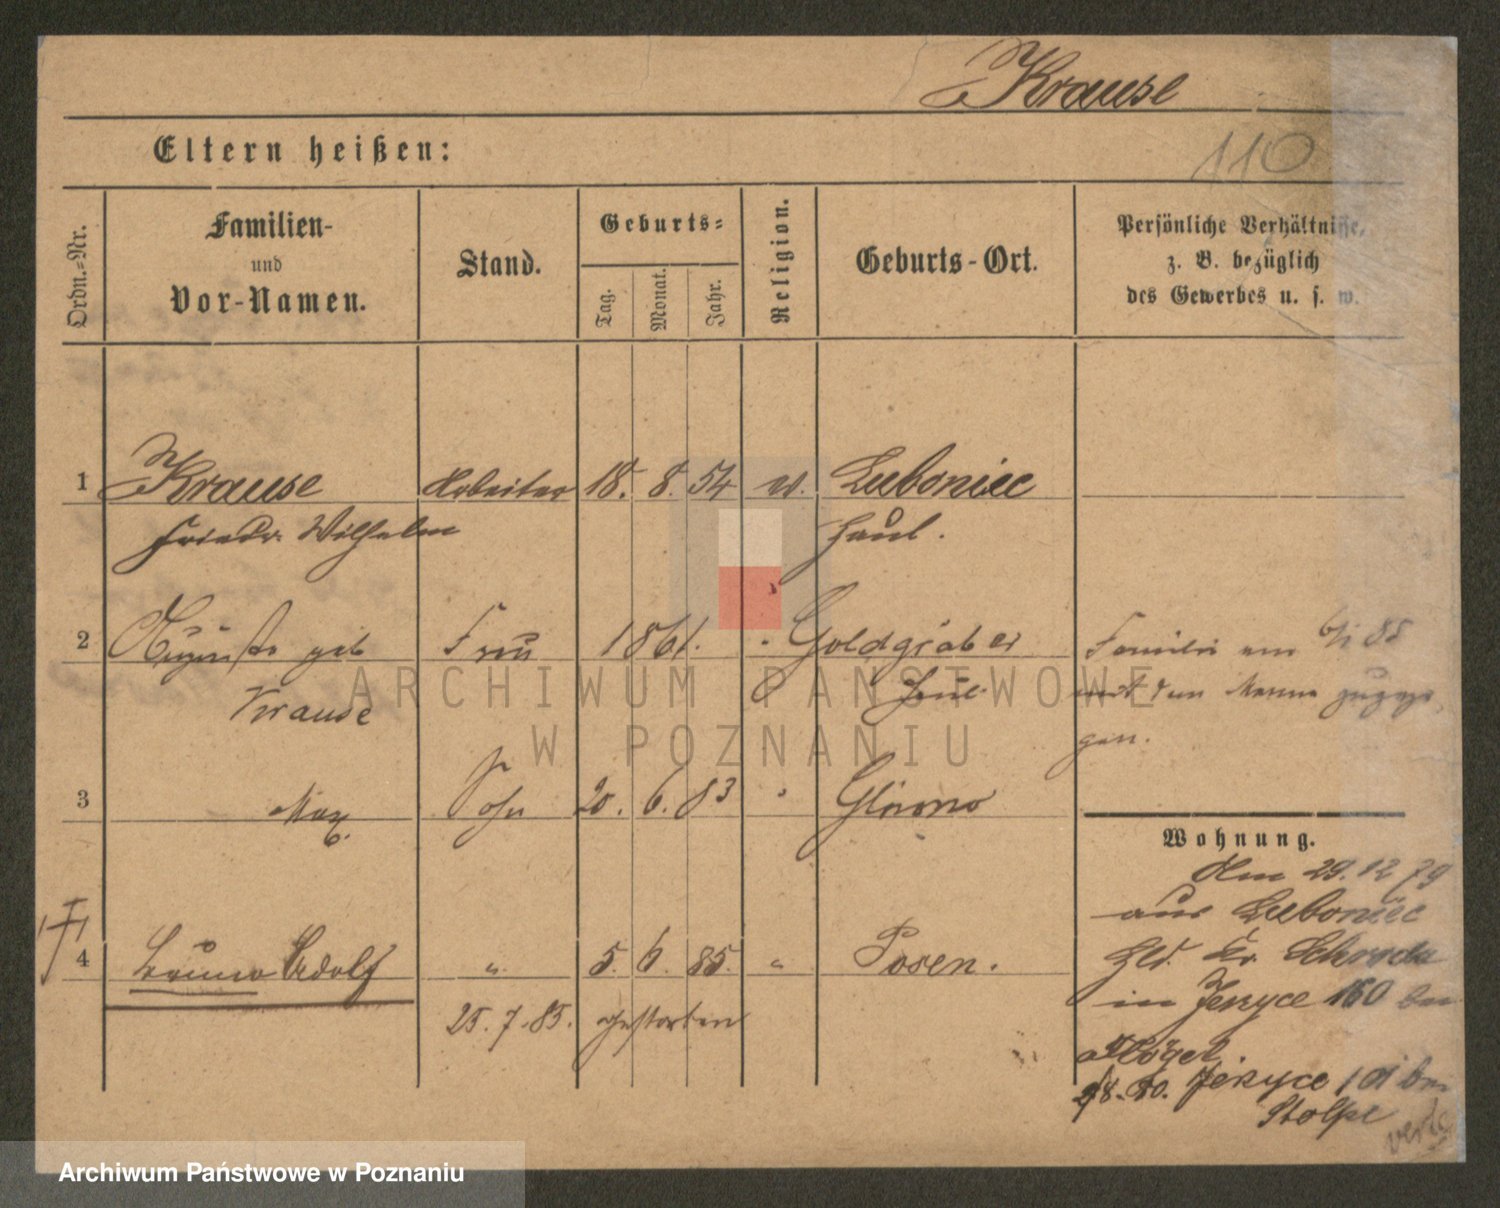 Krause
110
Eltern heißen:
Ordn.-Nr.
Familien-
und
Vor-Namen.
Stand.
Geburts-
Tag.
Monat.
Jahr.
Religion.
Geburts-Ort.
Persönliche Verhältnisse,
z. B. bezüglich
des Gewerbes u. s. w.
1 Krause Arbeiter 18. 8. 54 ev. Luboniec
Friedr. Wilhelm Haul.
2 Auguste geb Frau 1861. Goldgräber Familie am 6/1 85
Krause Haul. mit dem Manne zugezo-
gen.
3 Max Sohn 20. 6. 83 " Glowno
Wohnung.
Am 29.12 79
aus Luboniec
4 Bruno Adolf " 5. 6. 85. " Posen.
Hld. Kr. Schroda
in Jerzyce 160 bei
25. 7. 85. gestorben
Flögel.
Jerzyce 101 bei
Stolpe
verte
ARCHIWUM PAŃSTWOWE
W POZNANIU
Archiwum Państwowe w Poznaniu